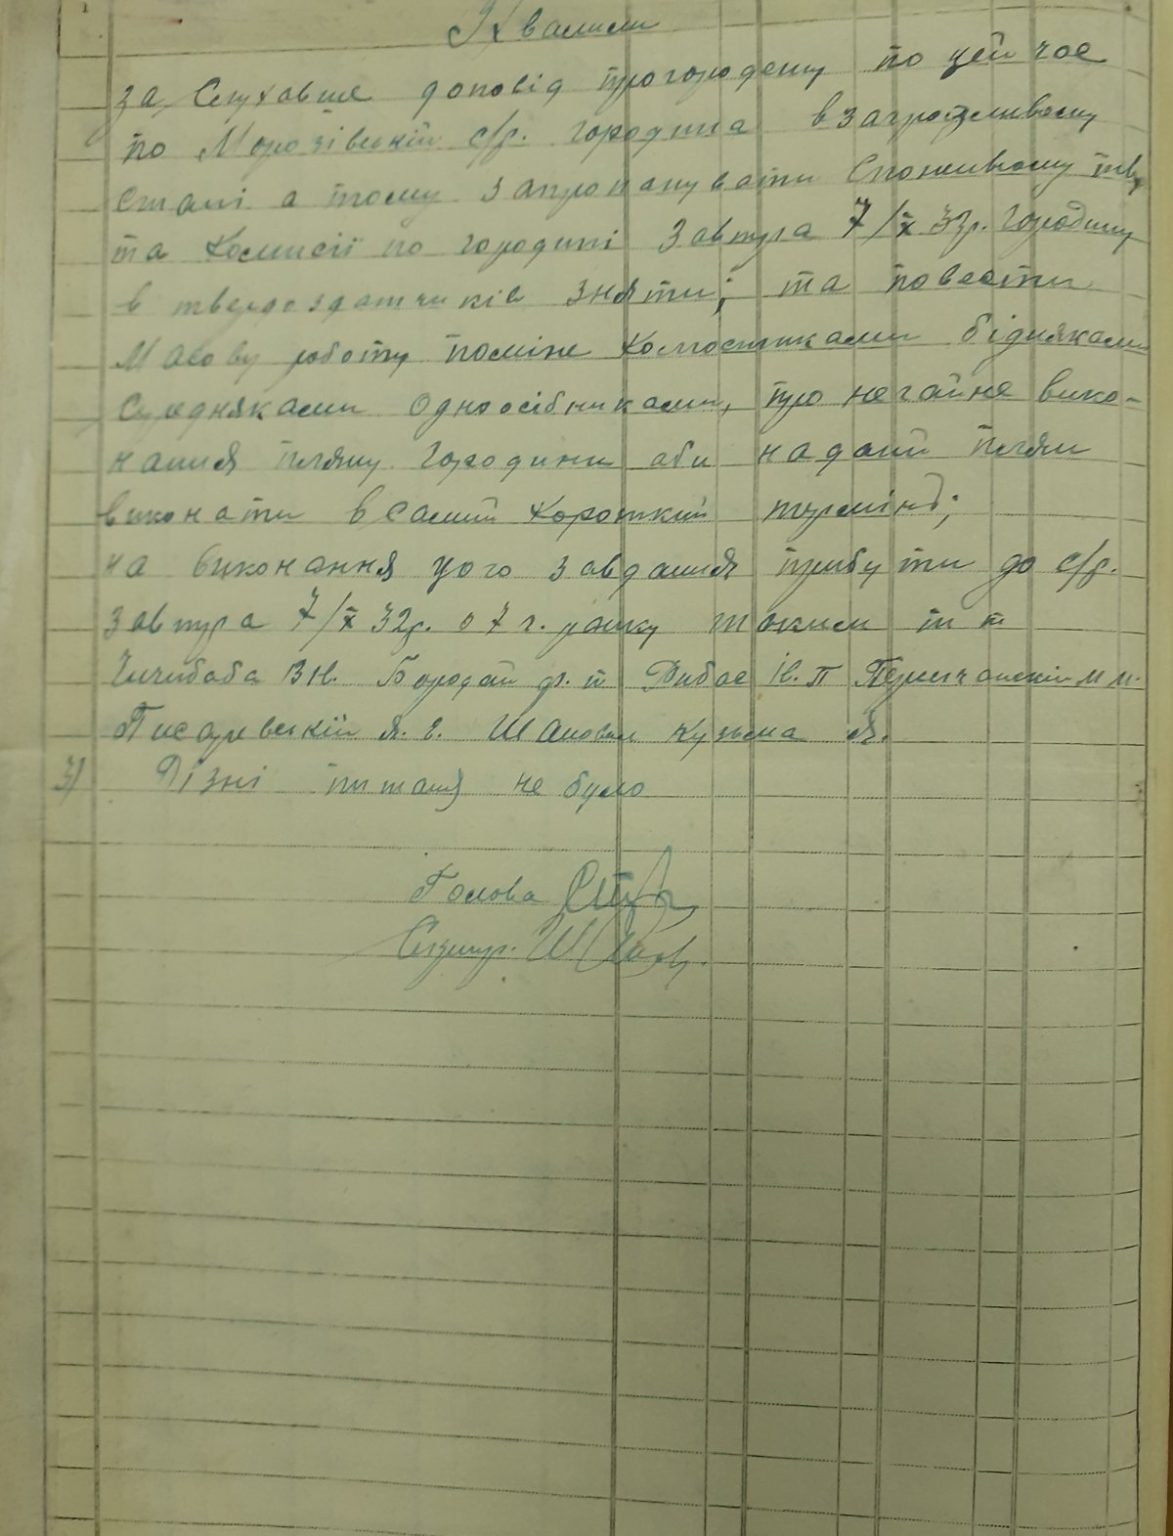 Ухвалили
за Слухавше доповід прогородену по цей час
по Морозівській с/р. городина в загрозливому
стані а тому запропанувати Споживчому тов,
та Комисії по городині завтра 7/X 32р. городину
в твердоздатчиків зняти; та повести
масову роботу поміж колгоспниками бідняками
Середняками Одноосібниками, про негайне вико-
нання пляну городини аби надані плян
виконати в самий короткий термінд;
на виконання цого завдання прибути до с/р.
завтра 7/X 32р. о 7 г. ранку таким т т
Чичибаба В Н. Бородай Рибас П
Писаревській Я. Е. Шаповал Кузьма Я.
3) Різні питаня не було
Голова
Секретр.